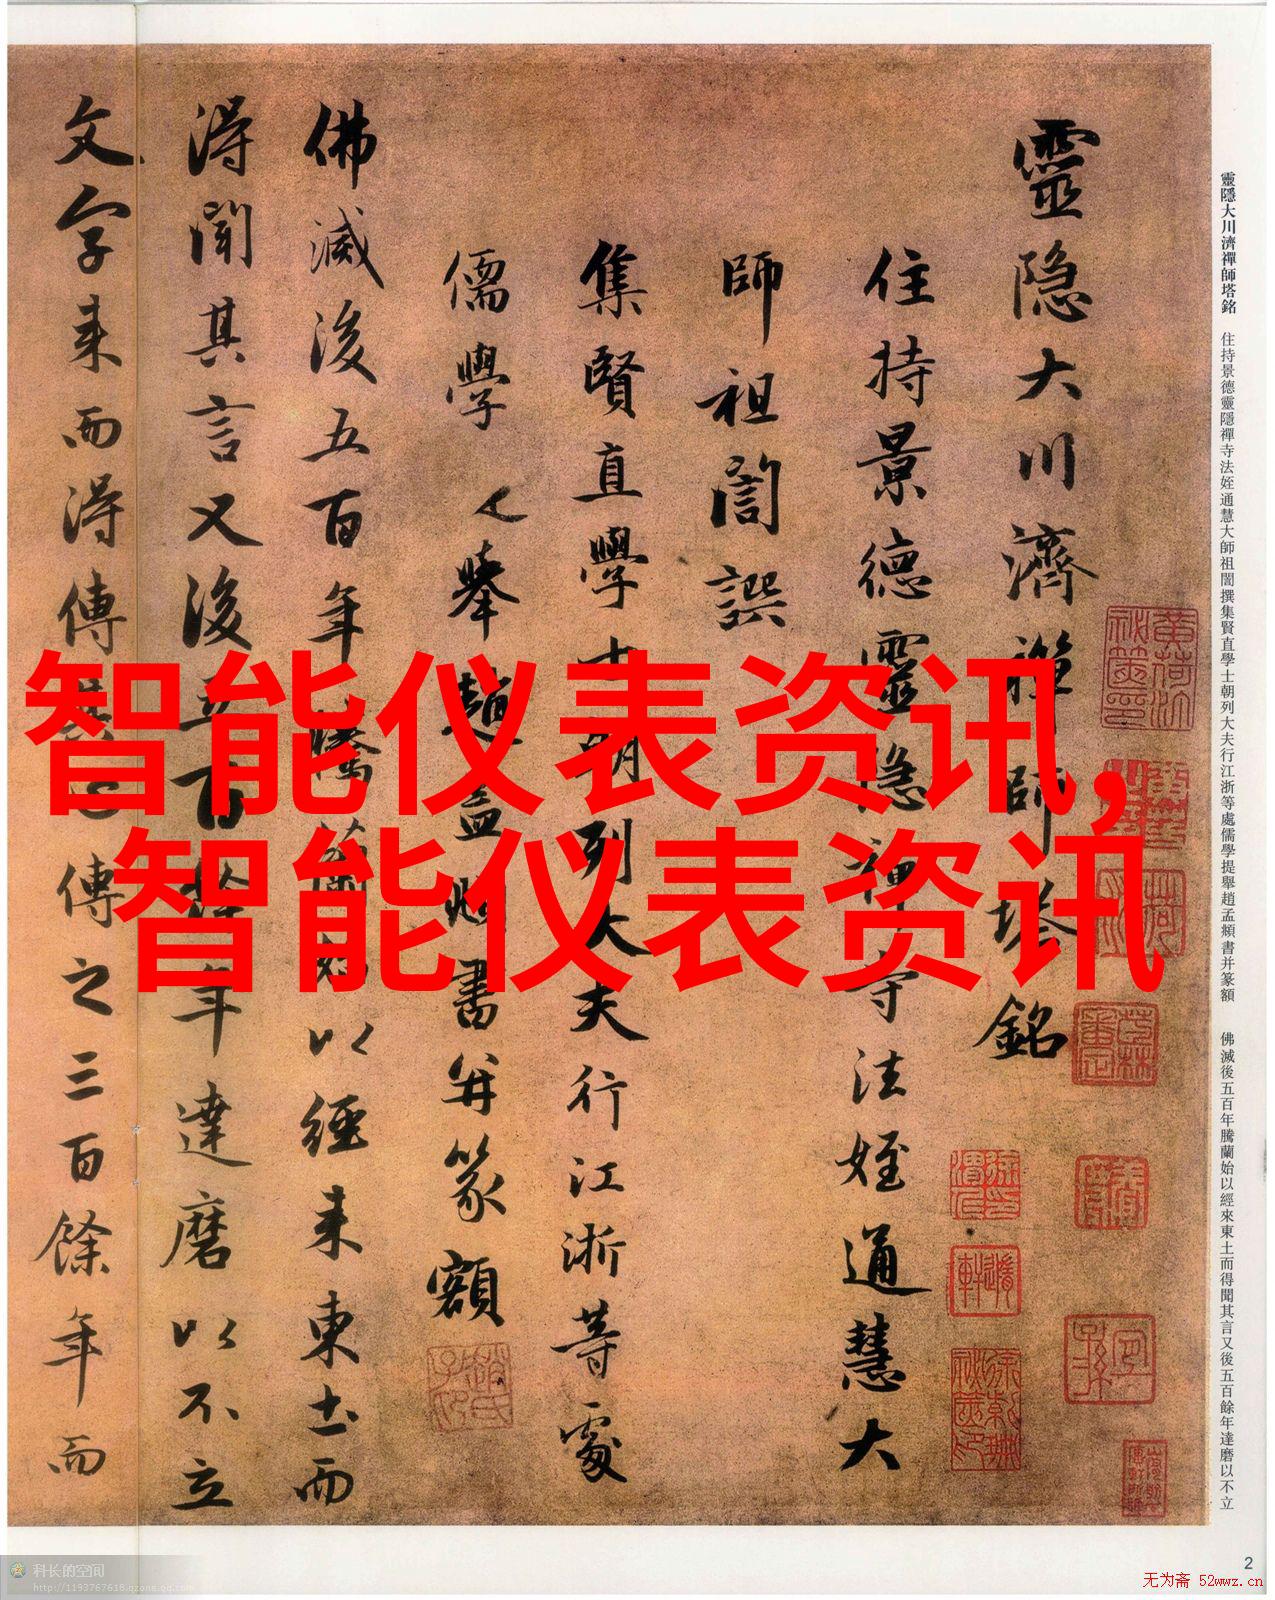 靈隱大川濟禪師塔銘
住持景德靈隱禪寺法姪通慧大
師祖誾譔
集賢直學士朝列大夫行江浙等處
儒學提舉趙孟頫書并篆額
佛滅後五百年騰蘭始以經来東土而
得聞其言又後五百餘年達磨以不立
文字来而得傳其心傳之三百餘年而
靈隱大川濟禪師塔銘 住持景德靈隱禪寺法姪通慧大師祖誾撰集賢直學士朝列大夫行江浙等處儒學提舉趙孟頫書并篆額 佛滅後五百年騰蘭始以經來東土而得聞其言又後五百餘年達磨以不立
智能仪表资讯,
智能仪表资讯
2
科长的空间
http://1193767618.qzone.qq.com
无为斋 52wwz.cn